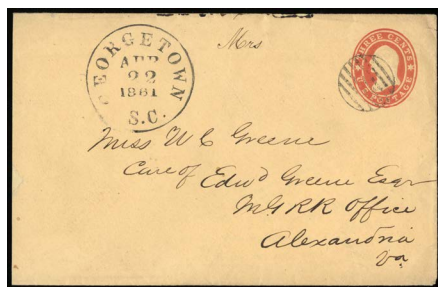 GEORGETOWN
APR
22
1861
S.C.
Mrs
U.S. POSTAGE
THREE CENTS
Miss W C Greene
Care of Edwd Greene Esqr
M G RR Office
Alexandria
Va